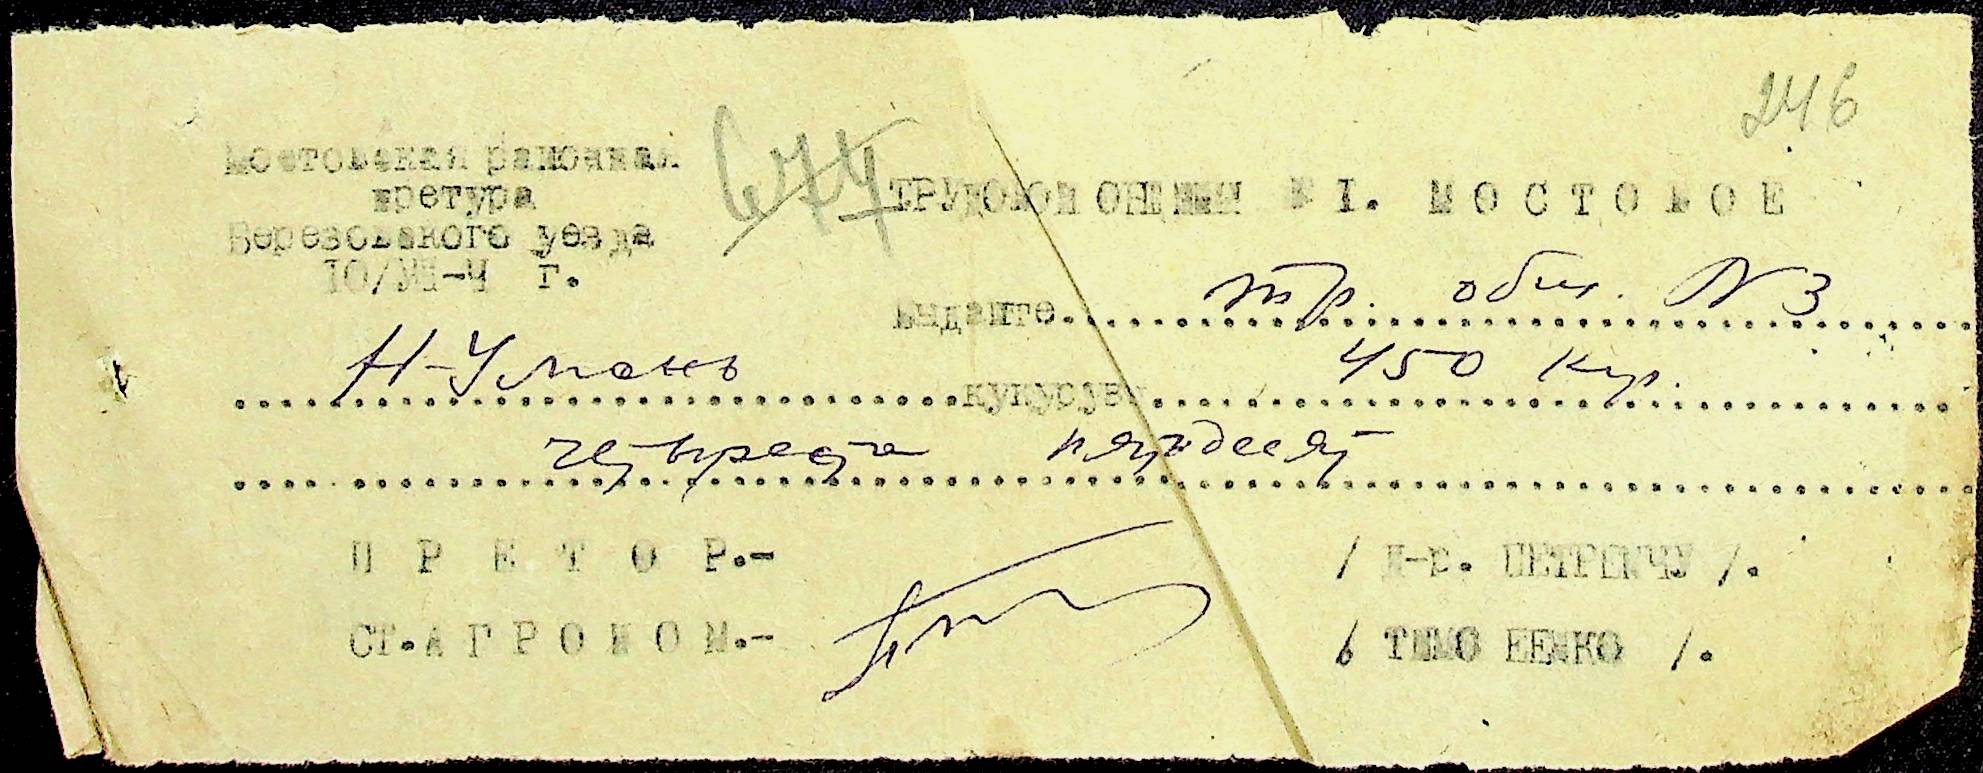 246
677
Мостовская районная
претура
Березовского уезда
10/VI-4 г.
ТРУДОВОЙ ОБЩИНЫ № 1. МОСТОВОЕ
Выдайте..... тр. общ. № 3
Н-Умань кукурузы 450 кгр.
четыреста пятьдесят
ПРЕТОР.-
/ Д-р. ПЕТРЕНЧУ /.
СТ.АГРОНОМ.-
/ ТИМОФЕЕНКО /.